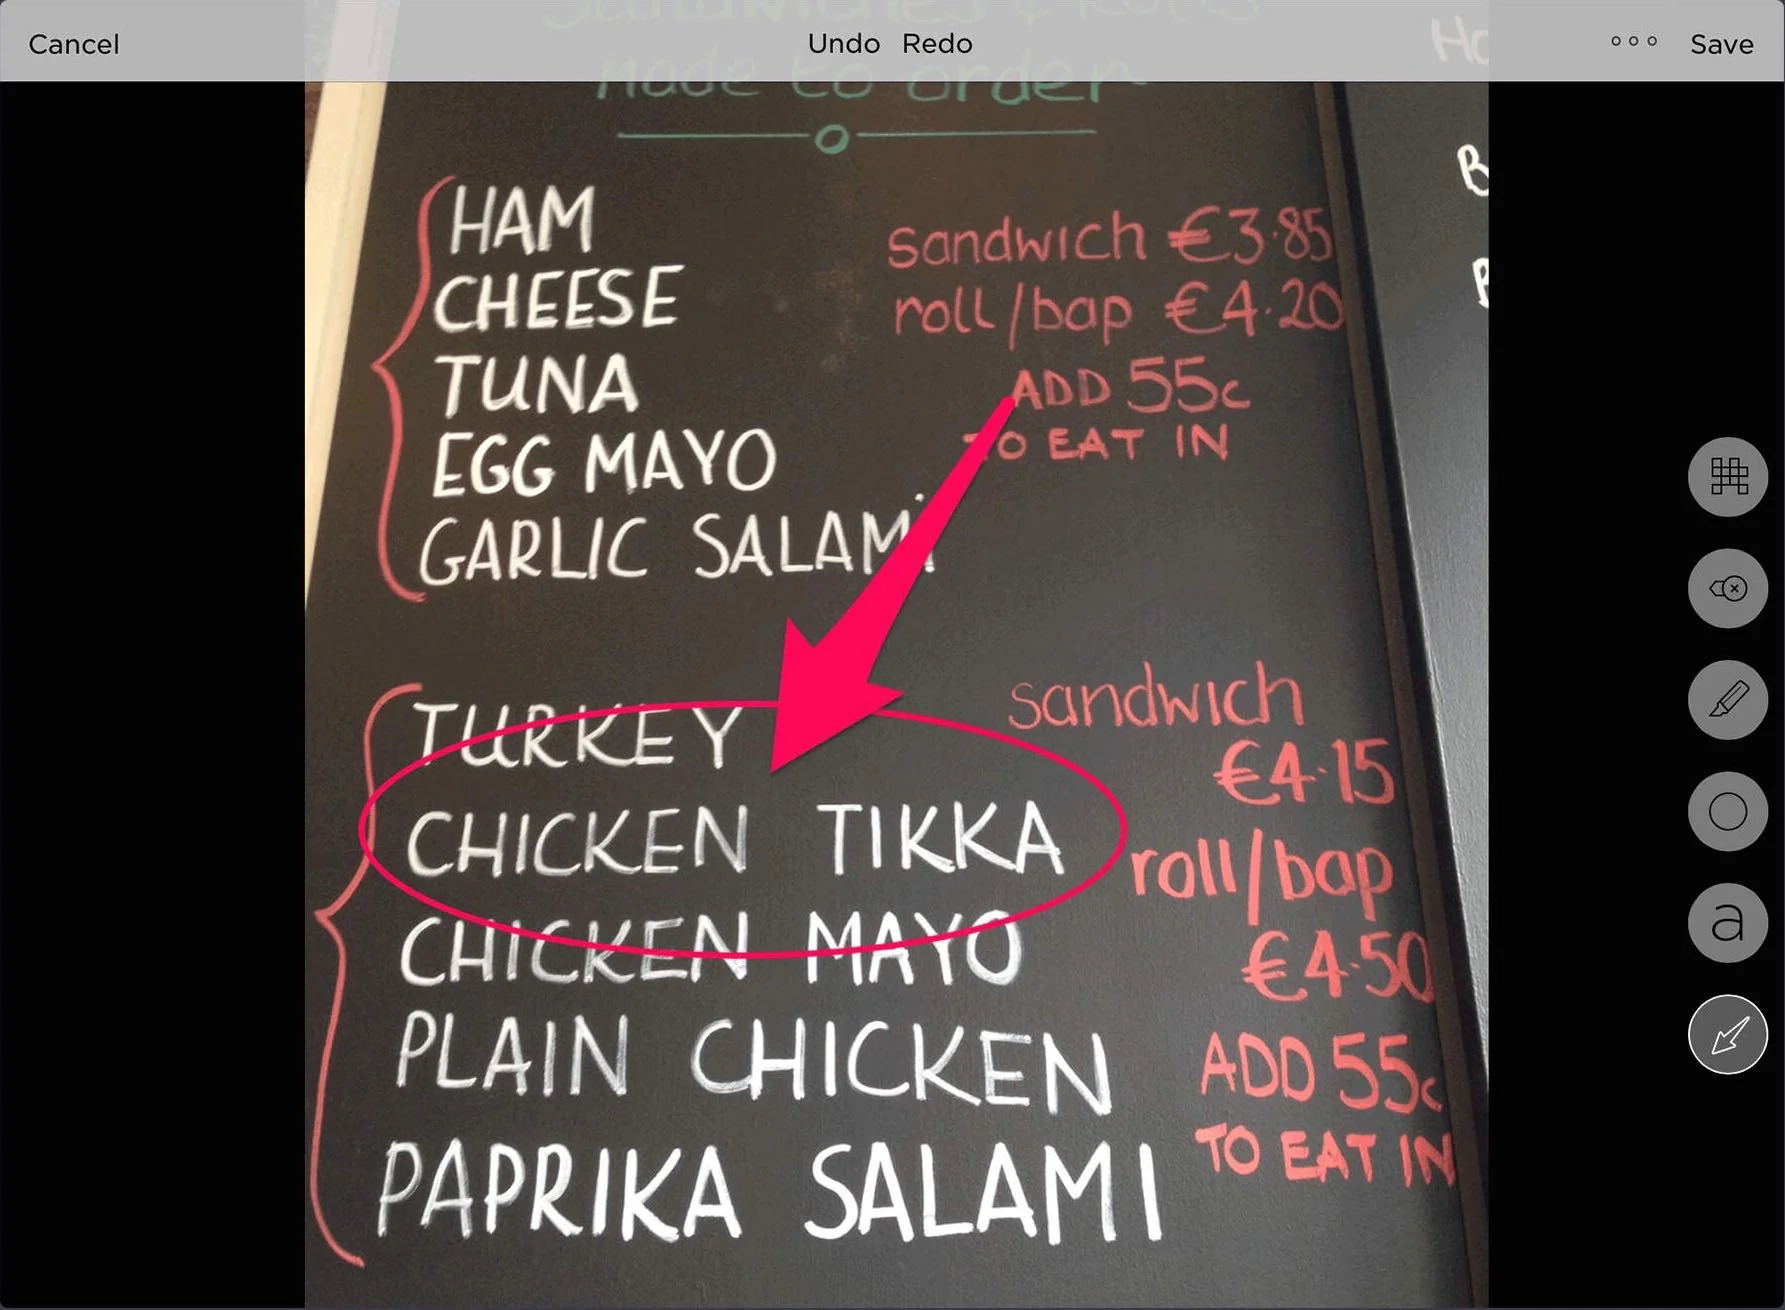 Cancel Undo Redo Save
Sandwiches & Rolls
made to order
HAM
CHEESE
TUNA
EGG MAYO
GARLIC SALAMi
sandwich €3.85
roll/bap €4.20
ADD 55c
TO EAT IN
TURKEY
CHICKEN TIKKA
CHICKEN MAYO
PLAIN CHICKEN
PAPRIKA SALAMI
sandwich
€4.15
roll/bap
€4.50
ADD 55c
TO EAT IN
a